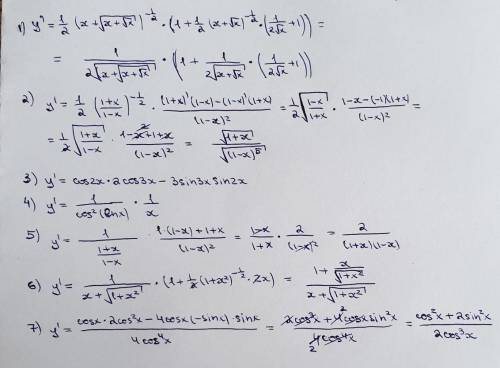 1) y' = 1/2 (x+√(x+√x))^(-1/2) · (1 + 1/2 (x+√x)^(-1/2) · (1/(2√x) + 1)) =
= 1/(2√(x+√(x+√x))) · (1 + 1/(2√(x+√x)) · (1/(2√x) + 1))
2) y' = 1/2 ((1+x)/(1-x))^(-1/2) · ((1+x)'(1-x) - (1-x)'(1+x))/(1-x)² = 1/2 √((1-x)/(1+x)) · (1-x-(-1)(1+x))/(1-x)² =
= 1/2 √((1+x)/(1-x)) · (1-x+1+x)/(1-x)² = √(1+x)/√((1-x)⁵)
3) y' = cos2x · 2cos3x - 3sin3x sin2x
4) y' = 1/cos²(lnx) · 1/x
5) y' = 1/((1+x)/(1-x)) · (1·(1-x)+1+x)/(1-x)² = (1-x)/(1+x) · 2/(1-x)² = 2/((1+x)(1-x))
6) y' = 1/(x+√(1+x²)) · (1 + 1/2 (1+x²)^(-1/2) · 2x) = (1 + x/√(1+x²))/(x+√(1+x²))
7) y' = (cosx · 2cos²x - 4cosx(-sinx) · sinx)/(4cos⁴x) = (2cos³x + 4cosx sin²x)/(4cos⁴x) = (cos²x + 2sin²x)/(2cos³x)